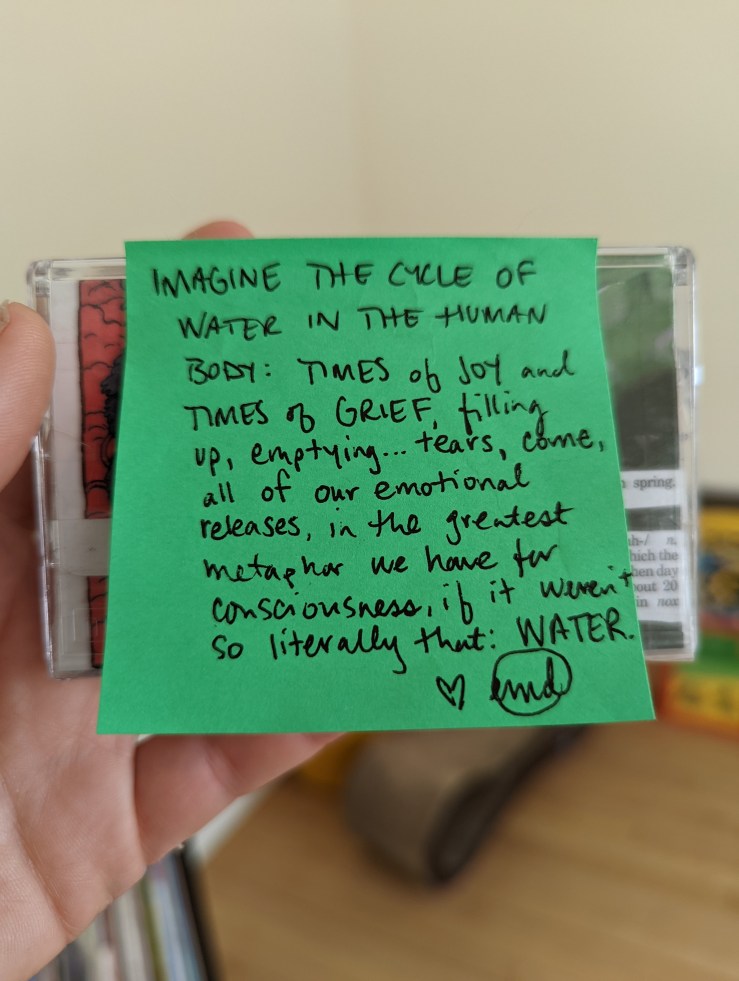 IMAGINE THE CYCLE OF
WATER IN THE HUMAN
BODY: TIMES of JOY and
TIMES of GRIEF, filling
up, emptying... tears, come,
all of our emotional
releases, in the greatest
metaphor we have for
consciousness, if it weren't
so literally that: WATER.
♡ emd
spring.
n,
hich the
hen day
out 20
in nox